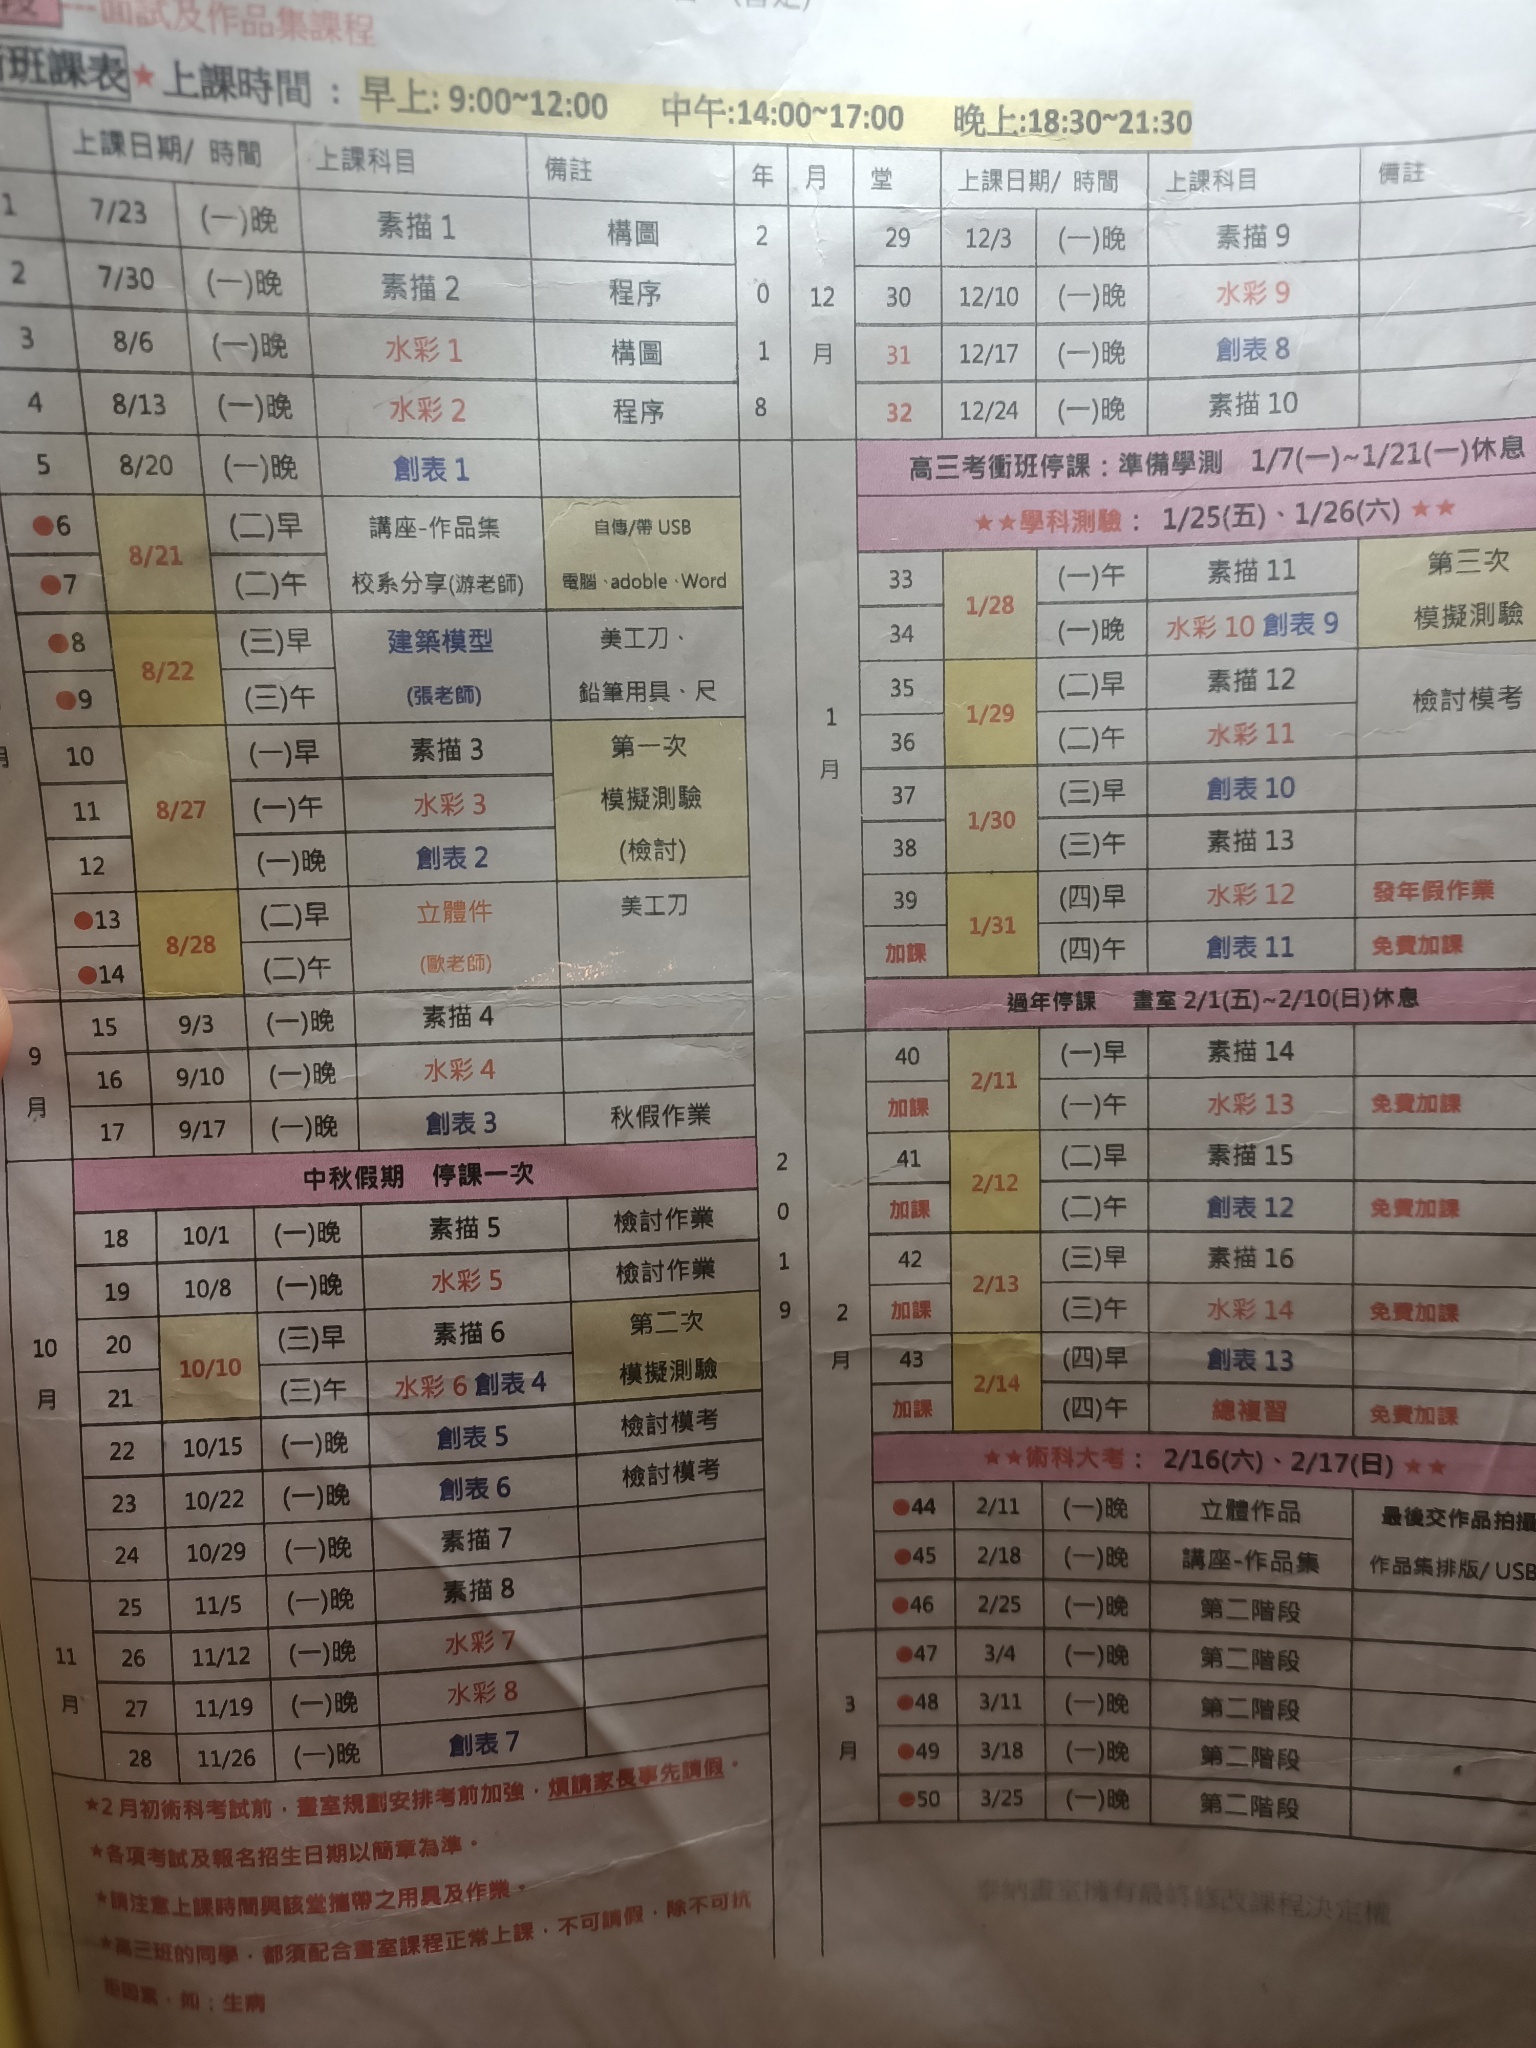 一面試及作品集課程
班課表★上課時間：早上: 9:00~12:00 中午:14:00~17:00 晚上:18:30~21:30
上課日期/ 時間 上課科目 備註
1 7/23 (一)晚 素描 1 構圖
2 7/30 (一)晚 素描 2 程序
3 8/6 (一)晚 水彩 1 構圖
4 8/13 (一)晚 水彩 2 程序
5 8/20 (一)晚 創表 1
●6 8/21 (二)早 講座-作品集 自傳/帶 USB
●7 (二)午 校系分享(游老師) 電腦、adoble、Word
●8 8/22 (三)早 建築模型 美工刀、
●9 (三)午 (張老師) 鉛筆用具、尺
10 8/27 (一)早 素描 3 第一次
11 (一)午 水彩 3 模擬測驗
12 (一)晚 創表 2 (檢討)
●13 8/28 (二)早 立體件 美工刀
●14 (二)午 (歐老師)
9月
15 9/3 (一)晚 素描 4
16 9/10 (一)晚 水彩 4
17 9/17 (一)晚 創表 3 秋假作業
中秋假期 停課一次
10月
18 10/1 (一)晚 素描 5 檢討作業
19 10/8 (一)晚 水彩 5 檢討作業
20 10/10 (三)早 素描 6 第二次
21 (三)午 水彩 6 創表 4 模擬測驗
22 10/15 (一)晚 創表 5 檢討模考
23 10/22 (一)晚 創表 6 檢討模考
24 10/29 (一)晚 素描 7
11月
25 11/5 (一)晚 素描 8
26 11/12 (一)晚 水彩 7
27 11/19 (一)晚 水彩 8
28 11/26 (一)晚 創表 7
★2 月初術科考試前，畫室規劃安排考前加強，煩請家長事先請假。
★各項考試及報名招生日期以簡章為準。
★請注意上課時間與該堂攜帶之用具及作業。
★高三班的同學，都須配合畫室課程正常上課，不可請假，除不可抗
拒因素，如：生病
年 月 堂 上課日期/ 時間 上課科目 備註
2018
12月
29 12/3 (一)晚 素描 9
30 12/10 (一)晚 水彩 9
31 12/17 (一)晚 創表 8
32 12/24 (一)晚 素描 10
2019
1月
高三考衝班停課：準備學測 1/7(一)~1/21(一)休息
★★學科測驗： 1/25(五)、1/26(六) ★★
33 1/28 (一)午 素描 11 第三次
34 (一)晚 水彩 10 創表 9 模擬測驗
35 1/29 (二)早 素描 12 檢討模考
36 (二)午 水彩 11
37 1/30 (三)早 創表 10
38 (三)午 素描 13
39 1/31 (四)早 水彩 12 發年假作業
加課 (四)午 創表 11 免費加課
過年停課 畫室 2/1(五)~2/10(日)休息
2月
40 2/11 (一)早 素描 14
加課 (一)午 水彩 13 免費加課
41 2/12 (二)早 素描 15
加課 (二)午 創表 12 免費加課
42 2/13 (三)早 素描 16
加課 (三)午 水彩 14 免費加課
43 2/14 (四)早 創表 13
加課 (四)午 總複習 免費加課
★★術科大考： 2/16(六)、2/17(日) ★★
●44 2/11 (一)晚 立體作品 最後交作品拍攝
●45 2/18 (一)晚 講座-作品集 作品集排版/ USB
●46 2/25 (一)晚 第二階段
3月
●47 3/4 (一)晚 第二階段
●48 3/11 (一)晚 第二階段
●49 3/18 (一)晚 第二階段
●50 3/25 (一)晚 第二階段
畫室擁有最終修改課程決定權